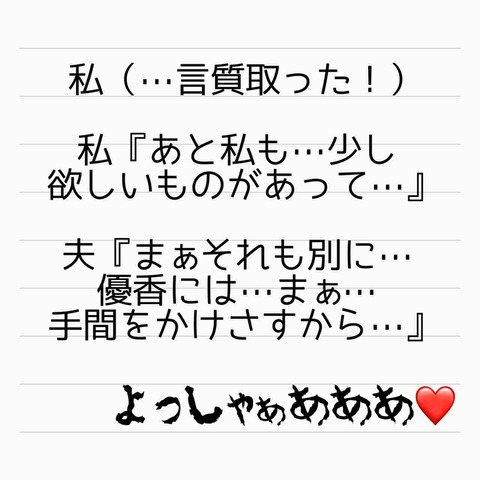 私（…言質取った！）
私『あと私も…少し
欲しいものがあって…』
夫『まぁそれも別に…
優香には…まぁ…
手間をかけさすから…』
よっしゃぁあああ❤️